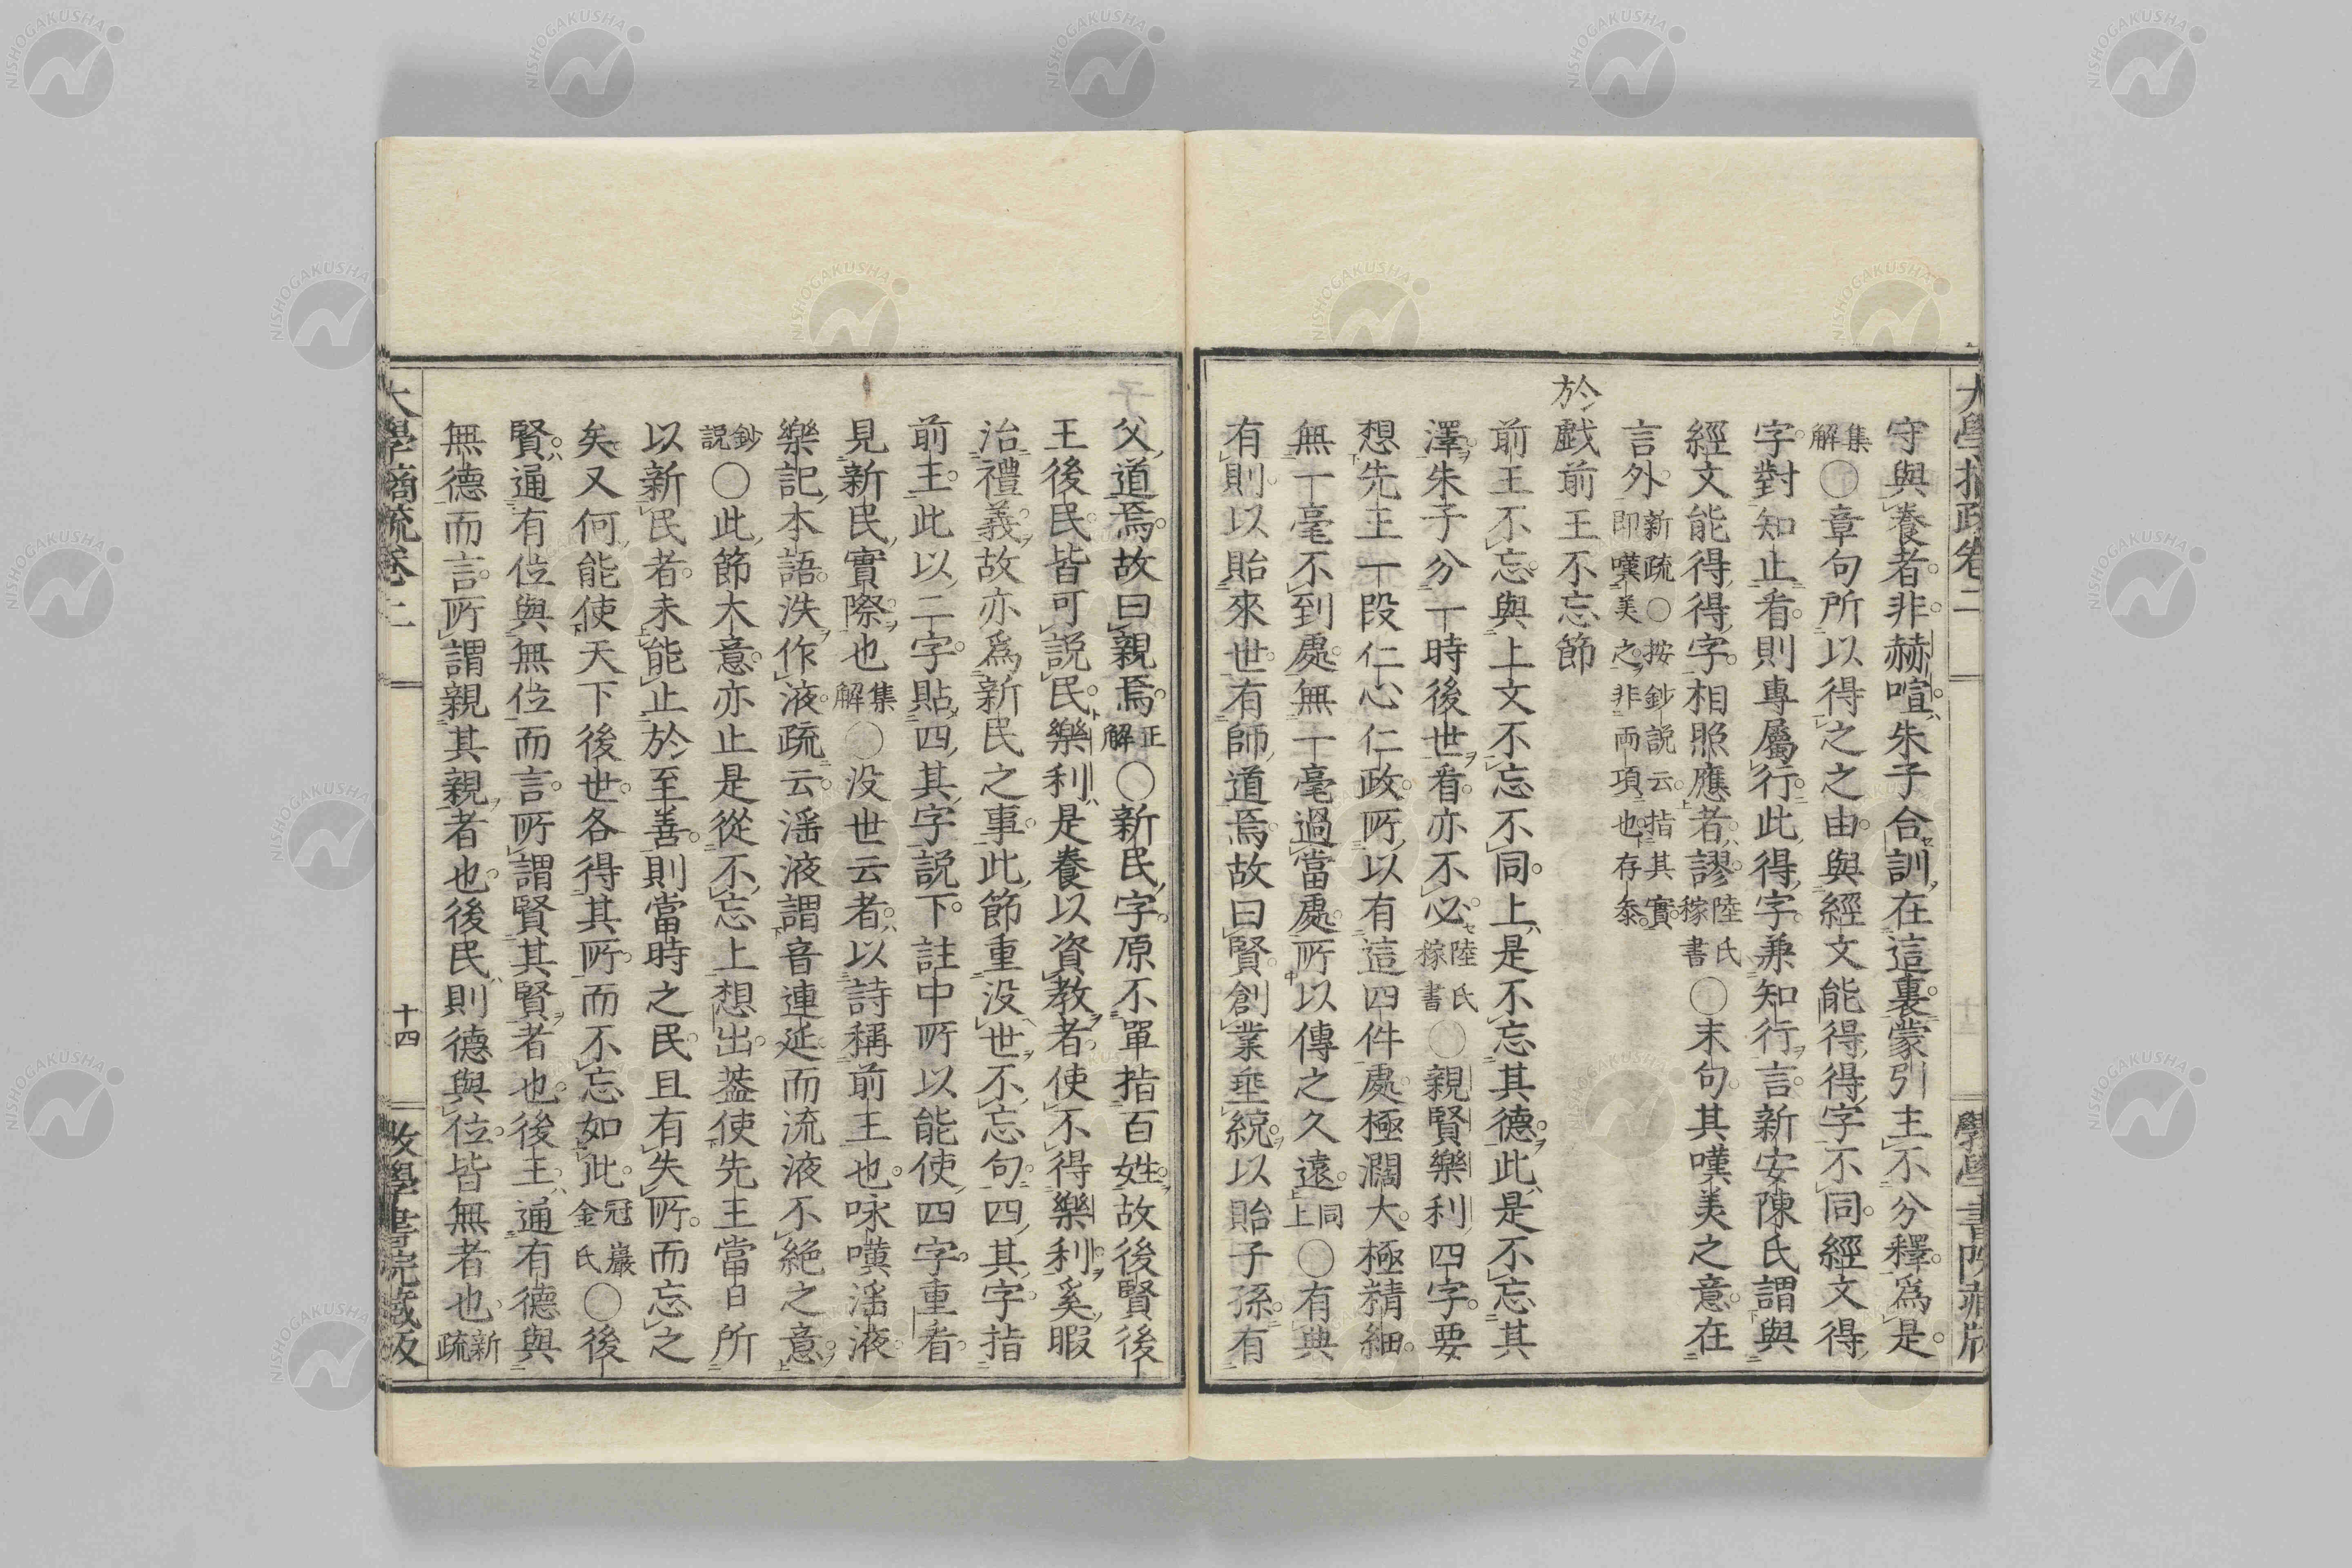 守與養者。非赫喧。朱子合訓在這裏。蒙引主不分釋。爲是。
集解○章句所以得之之由。與經文能得得字不同。經文得
字。對知止看。則專屬行。此得字。兼知行言。新安陳氏謂與
經文能得得字。相照應者。謬。陸氏稼書○末句。其嘆美之意。在
言外。新疏○按鈔説云。指其實。即嘆美之。非兩項也。存參。
於戲前王不忘節
前王不忘。與上文不忘不同。上是不忘其德。此是不忘其
澤。朱子分一時後世看。亦不必。陸氏稼書○親賢樂利四字。要
想先王一段仁心仁政。所以有這四件處。極濶大。極精細。
無一毫不到處。無一毫過當處。所以傳之久遠。同上○有典
有則。以貽來世。有師道焉。故曰賢。創業垂統。以貽子孫。有
父道焉。故曰親焉。正解○新民字。原不單指百姓。故後賢後
王後民。皆可説民。樂利是養以資教者。使不得樂利。奚暇
治禮義。故亦爲新民之事。此節重没世不忘句。四其字。指
前王。此以二字。貼四其字説下。註中所以能使四字。重看。
見新民實際也。集解○没世云者。以詩稱前王也。咏嘆滛液。
樂記本語。泆作液。疏云。滛液謂音連延而流液不絶之意。
鈔説○此節大意。亦止是從不忘上想出。葢使先王當日所
以新民者。未能止於至善。則當時之民。且有失所。而忘之
矣。又何能使天下後世。各得其所。而不忘如此。冠巖金氏○後
賢。通有位與無位而言。所謂賢其賢者也。後王。通有德與
無德而言。所謂親其親者也。後民。則德與位。皆無者也。新疏
大學摘疏卷二
十四